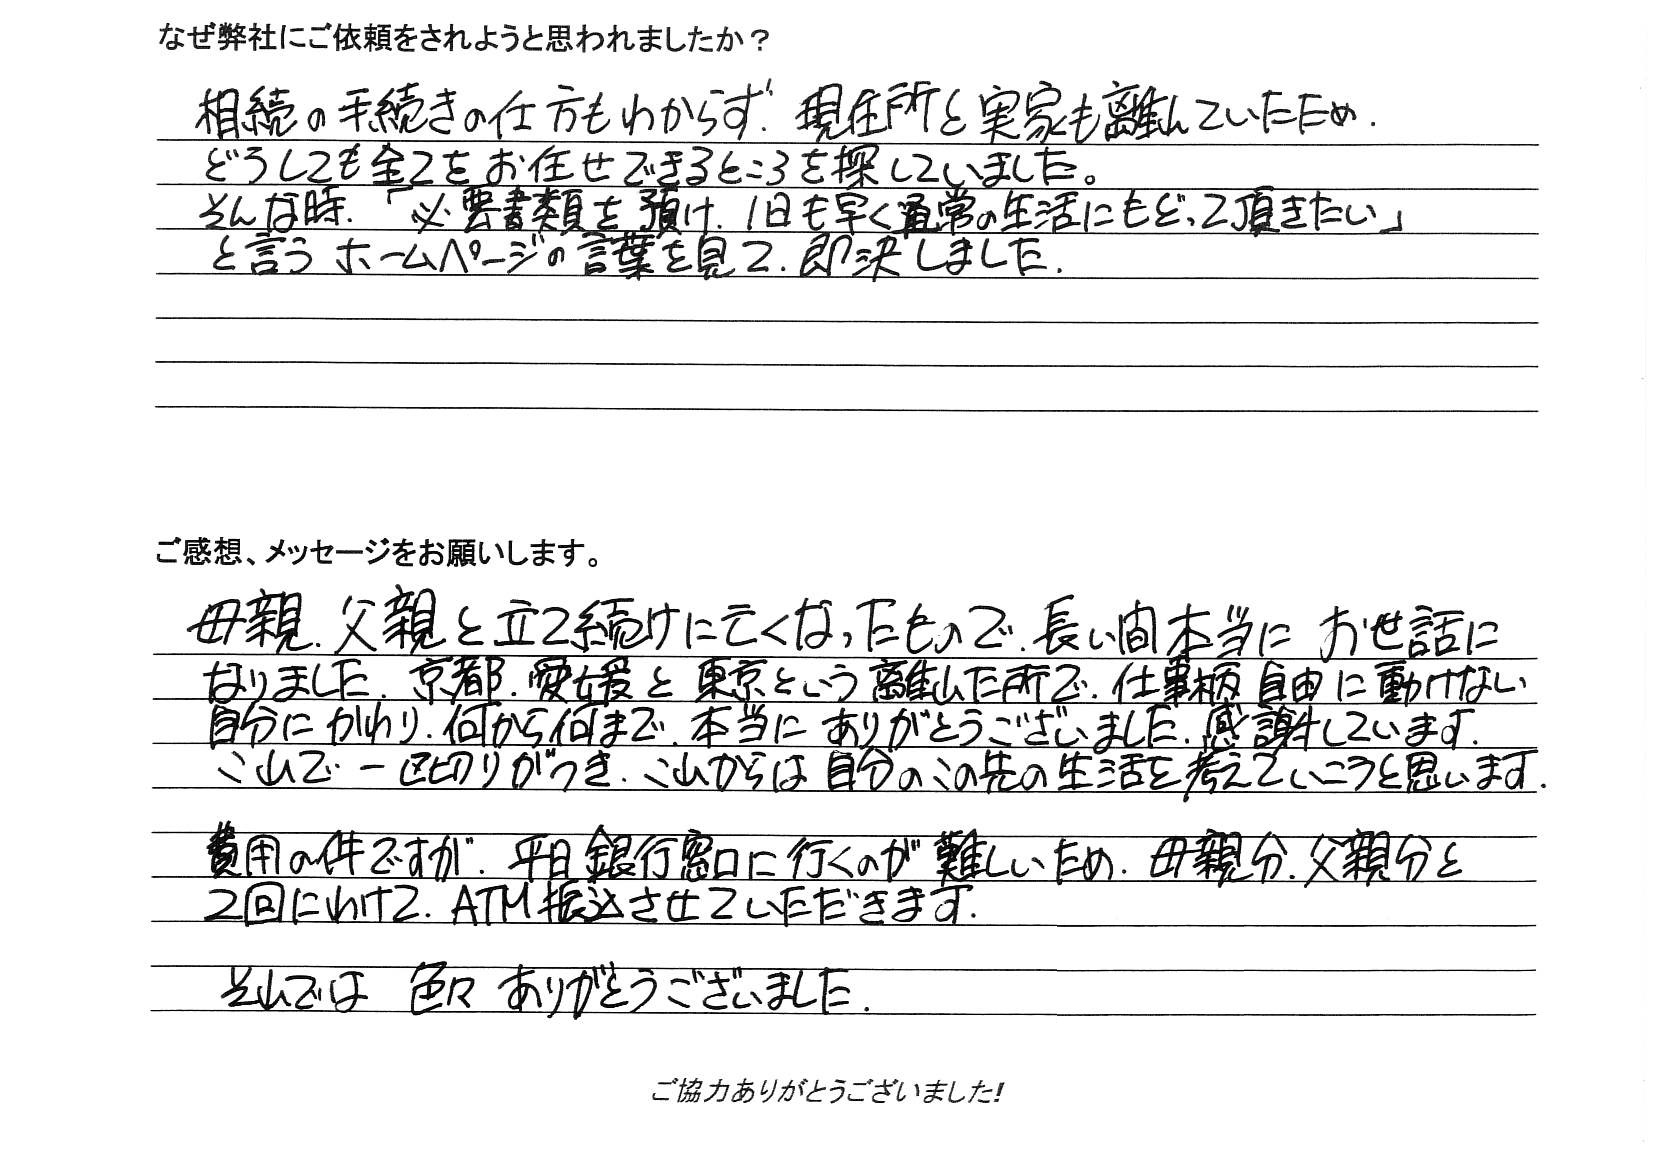 なぜ弊社にご依頼をされようと思われましたか？
相続の手続きの仕方もわからず、現住所と実家も離れていたため、
どうしても全てをお任せできるところを探していました。
そんな時、「必要書類を預け、1日も早く通常の生活にもどって頂きたい」
と言うホームページの言葉を見て、即決しました。
ご感想、メッセージをお願いします。
母親、父親と立て続けに亡くなったもので、長い間本当にお世話に
なりました。京都、愛媛と東京という離れた所で、仕事柄自由に動けない
自分にかわり、何から何まで、本当にありがとうございました。感謝しています。
これで一区切りがつき、これからは自分のこの先の生活を考えていこうと思います。
費用の件ですが、平日銀行窓口に行くのが難しいため、母親分、父親分と
2回にわけて、ATM振込させていただきます。
それでは 色々ありがとうございました。
ご協力ありがとうございました!